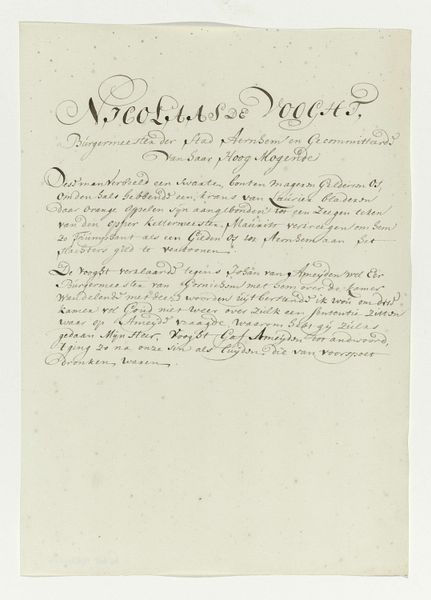 NICOLAAS DE VOOGHT,
Burgermeester der Stad Aernhem en Gecommitteerde
van haar Hoog Mogende
Dees man verbeeld een swaaren, bonten mageren Gelderson Os,
om den hals hebbende een krans van Lauriere bladeren
daar orange appelen sijn aangebonden tot een Zeegen teken
van den opper Kellermeester Mauwarts verkreegen om hem
zo Triumphant als een Gilden Os tot Aernhem aan het
slachters gild te vertoonen.
De Vooght verklaarde tegens Johan van Ameyden wel Eer
Burgermeester van Gornichem met hem over de kamer
Wandelende met dees woorden uijtberstende ik wou om dees
kamer vol Goud niet weer over zulk een sententie zitten
waar op Ameyde vraagde, waarom hebt gij zulks
gedaan Mijn Heer, Vooght Gaf Ameyden tot andwoord,
t ging zo na onze sin als luyden die van voorspoet
dronken waren